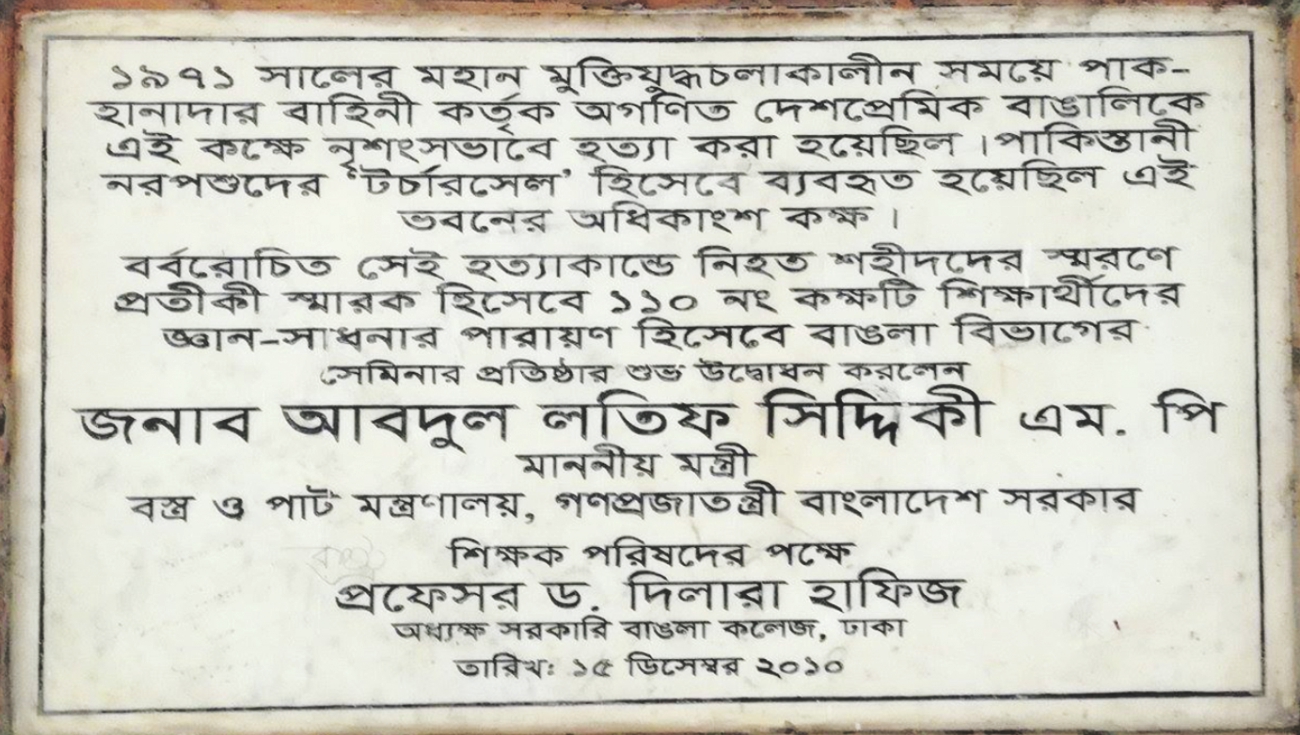 ১৯৭১ সালের মহান মুক্তিযুদ্ধচলাকালীন সময়ে পাক-
হানাদার বাহিনী কর্তৃক অগণিত দেশপ্রেমিক বাঙালিকে
এই কক্ষে নৃশংসভাবে হত্যা করা হয়েছিল। পাকিস্তানী
নরপশুদের ‘টর্চারসেল’ হিসেবে ব্যবহৃত হয়েছিল এই
ভবনের অধিকাংশ কক্ষ।
বর্বরোচিত সেই হত্যাকান্ডে নিহত শহীদদের স্মরণে
প্রতীকী স্মারক হিসেবে ১১০ নং কক্ষটি শিক্ষার্থীদের
জ্ঞান-সাধনার পারায়ণ হিসেবে বাঙলা বিভাগের
সেমিনার প্রতিষ্ঠার শুভ উদ্বোধন করলেন
জনাব আবদুল লতিফ সিদ্দিকী এম. পি
মাননীয় মন্ত্রী
বস্ত্র ও পাট মন্ত্রণালয়, গণপ্রজাতন্ত্রী বাংলাদেশ সরকার
শিক্ষক পরিষদের পক্ষে
প্রফেসর ড. দিলারা হাফিজ
অধ্যক্ষ সরকারি বাঙলা কলেজ, ঢাকা
তারিখ: ১৫ ডিসেম্বর ২০১০